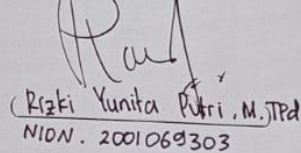 (Rizki Yunita Putri, M.TPd
NION. 2001069303